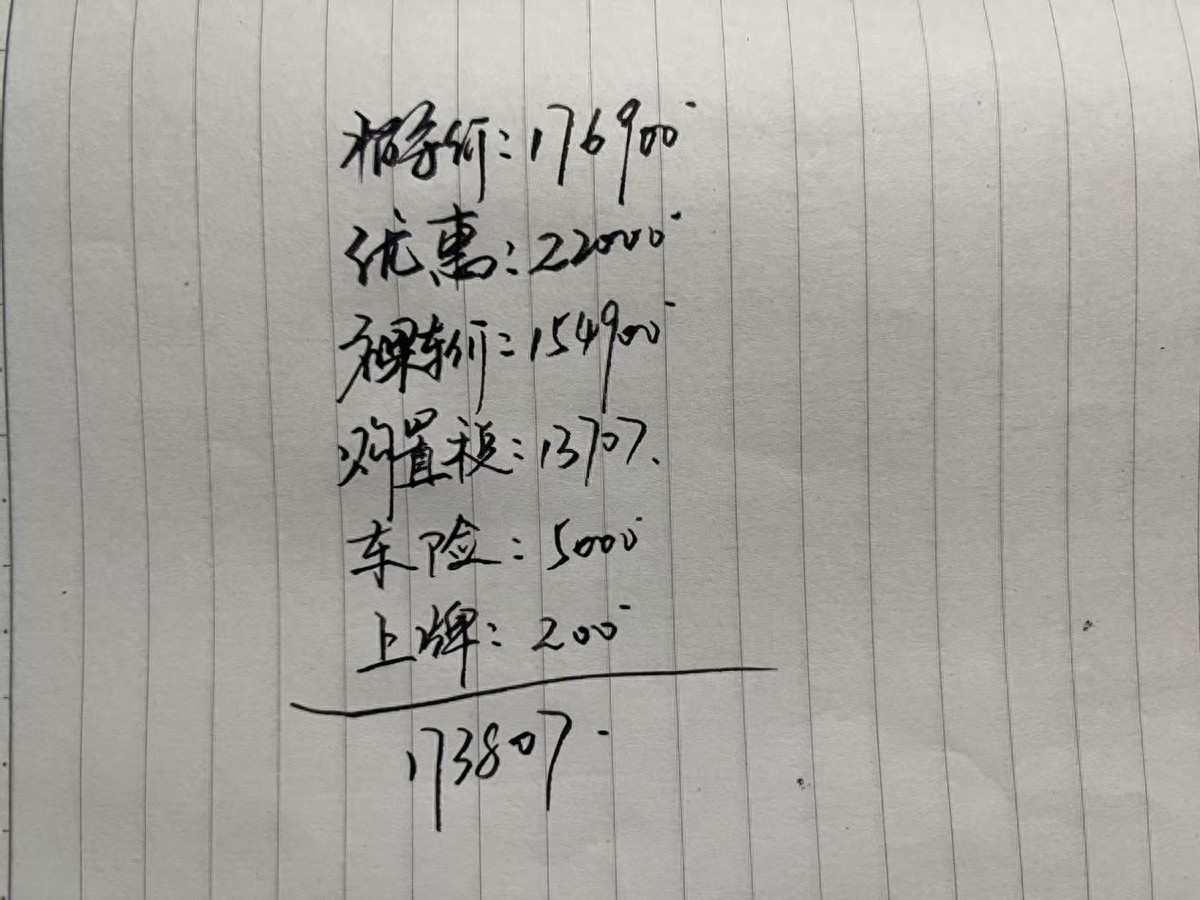 指导价:176900
优惠:22000
裸车价:154900
购置税:13707.
车险:5000
上牌:200
173807.